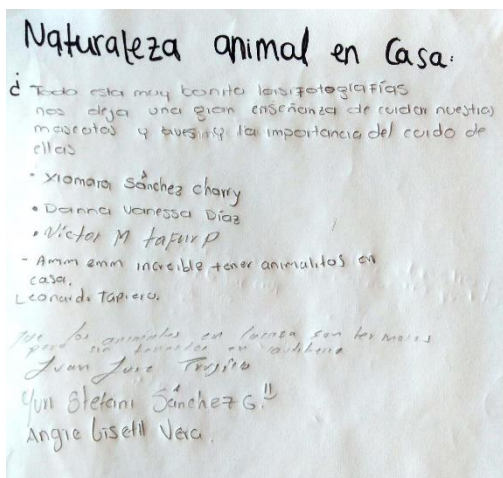 Naturaleza animal en Casa.
¿ Todo esta muy bonito las fotografías
nos deja una gran enseñanza de cuidar nuestras
mascotas y la importancia del cuido de
ellas
- Xiomara Sánchez charry
• Danna Vanessa Díaz
• Victor M tafur P
- Amm emm increible tener animalitos en
casa.
Leonardo Tapiero.
que los animales en son hermosos
pero sin
Juan Jose Trujillo
Yuri Stefani Sánchez G.
Angie Lisell Vera.